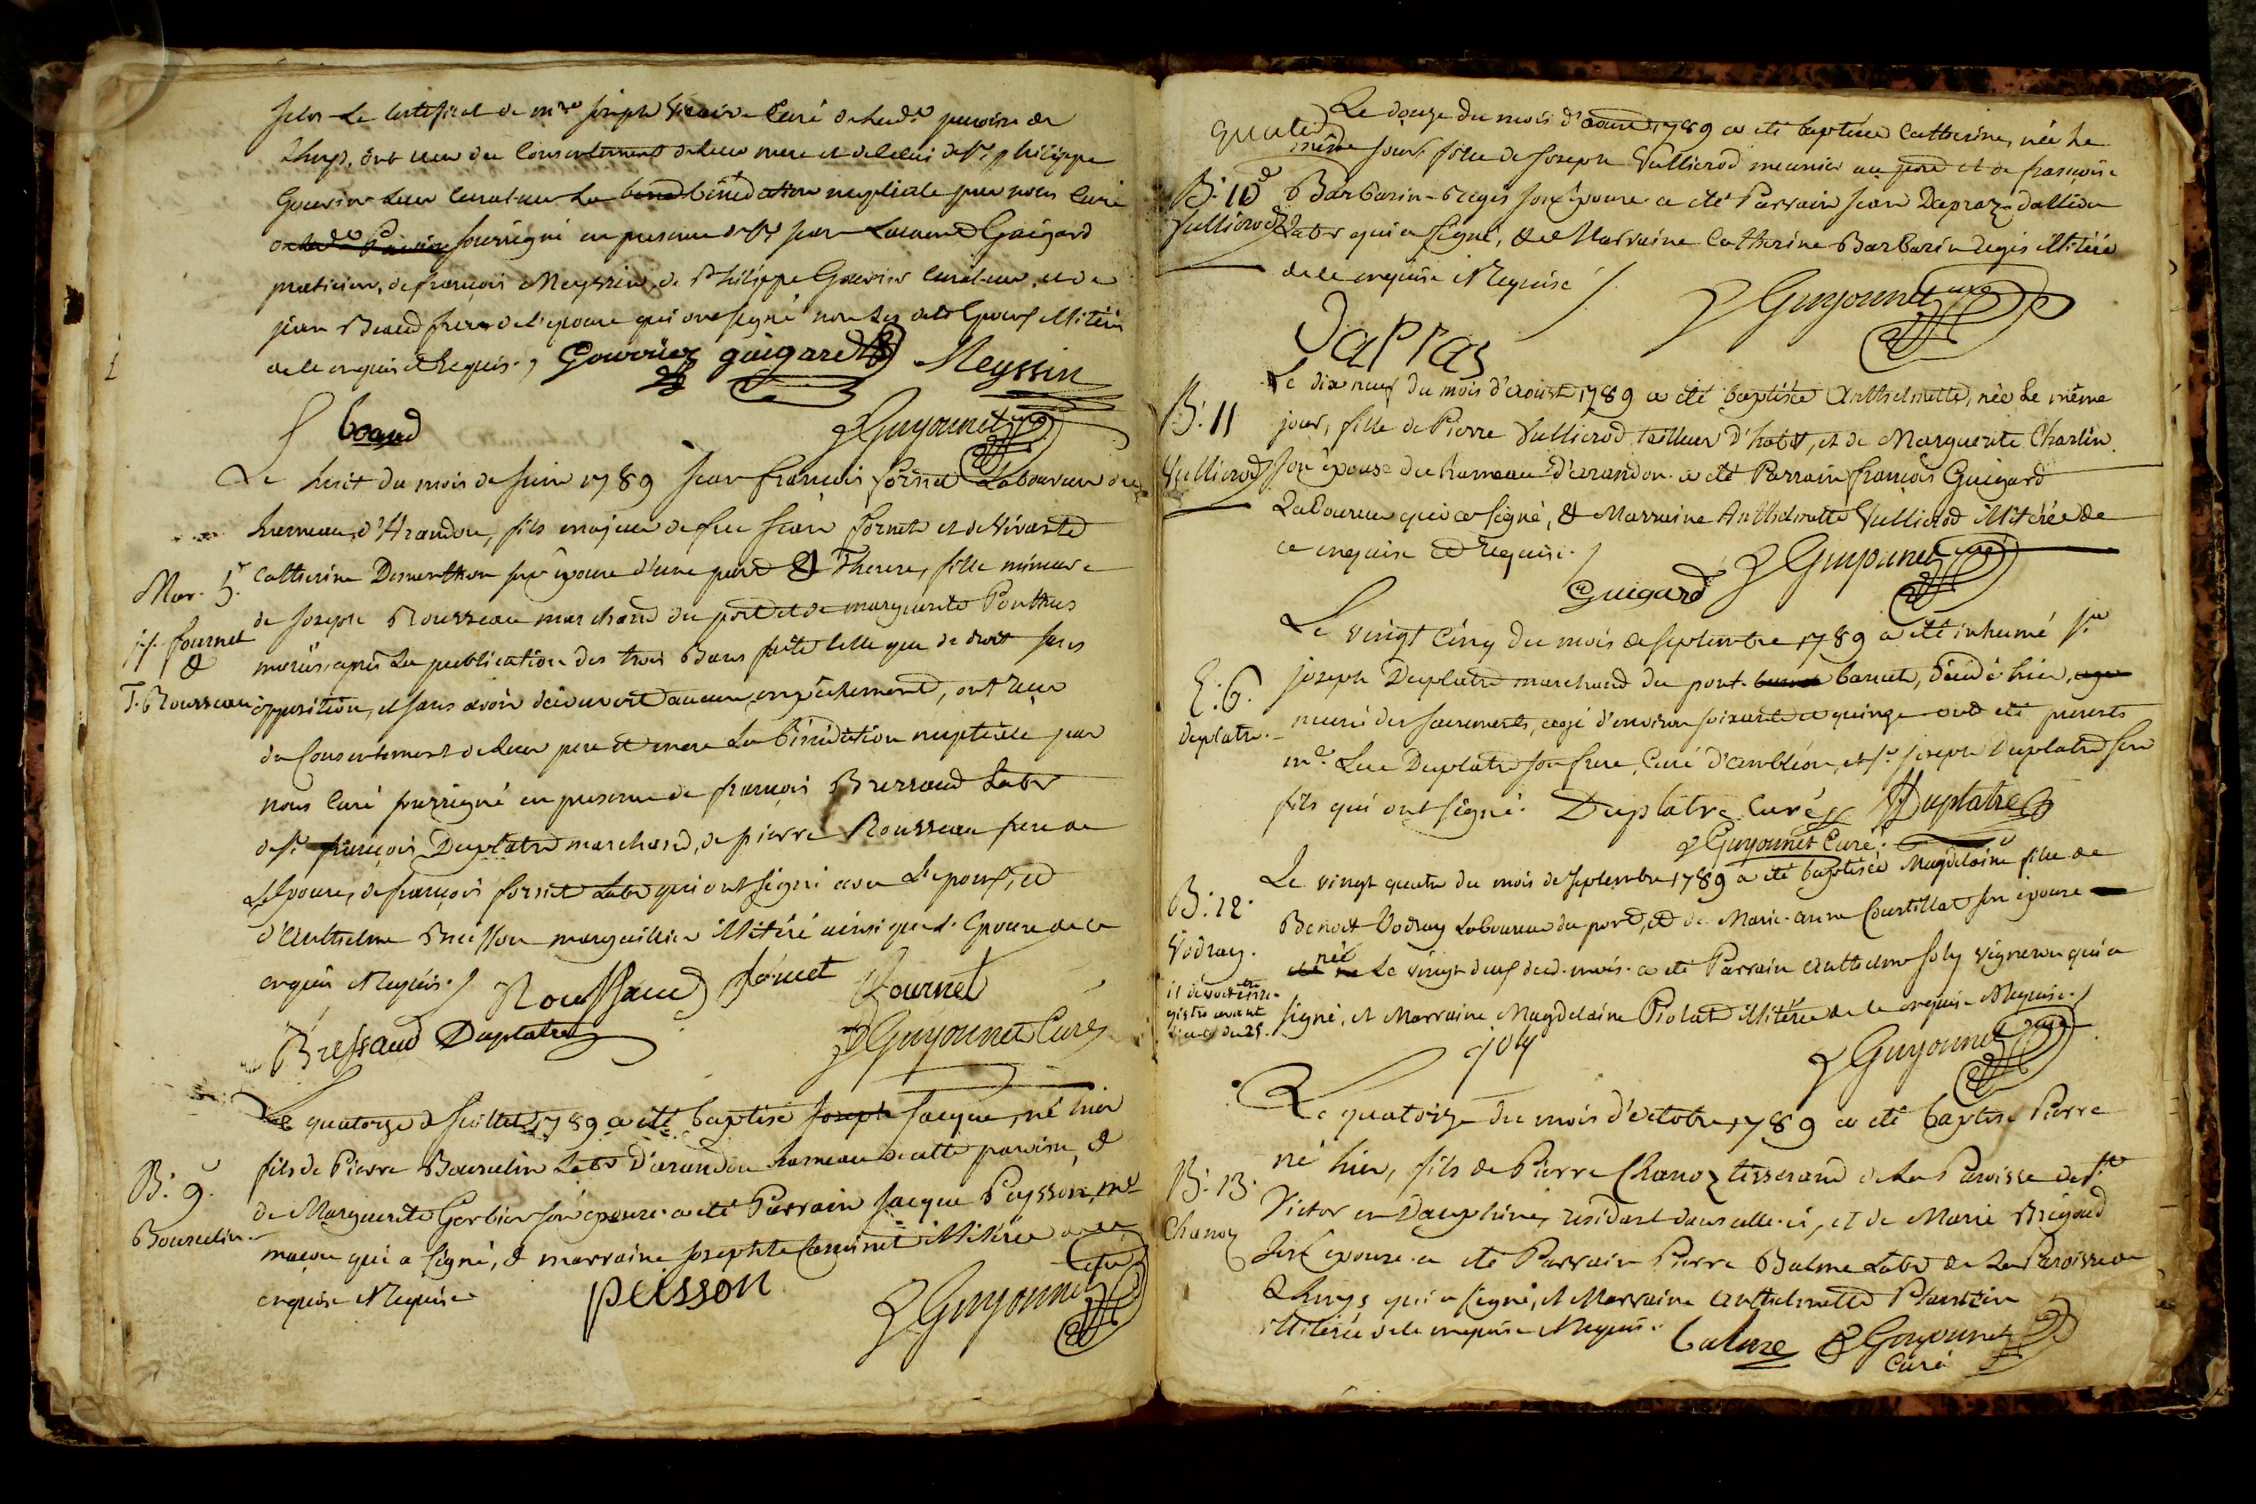 selon le certificat de m.re joseph curé de lad.e paroisse de
Lhuys, ont reçu du Consentement de leur mere et de celui de s.r philippe
Gourier leur curateur la benediction nuptiale par nous Curé
soussigné en presence de s.r jean Guigard
praticien, de françois Meyssin, de Philippe Gourier curateur, et de
jean Beaud frere de l'epouse qui ont signé non les Epoux illiteré
de ce enquis et Requis.
Gourrier guigard Meyssin
beaud
Guyonnet curé
Le huit du mois de juin 1789 jean françois fornet Laboureur du
hameau d'Arandon, fils majeur de feu jean fornet et de vivante
Mar. 5.
Catherine Dementhon son epouse d'une part & Therese, fille mineure
de joseph Rousseau marchand du port et de marguerite Ponthus
j.f. fournet
&
T. Rousseau
mariés, après la publication des trois Bans faite telle que de droit sans
opposition, et sans avoir découvert aucun empêchement, ont reçu
du Consentement de leur pere et mere la bénédiction nuptiale par
nous Curé soussigné en presence de françois Bressaud Lab.r
de s.r françois Duplatre marchand, de pierre Rousseau frere de
L'Epouse, de françois fornet Lab.r qui ont signé avec L'epoux, et
d'Anthelme Buisson marguillier illiteré ainsi que l'Epouse de ce
enquis et Requis.
Rousseau fornet fournet
Bressaud Duplatre
Guyonnet Curé
Le quatorze de juillet 1789 a été baptisé joseph jacque, né hier
B. 9.
Bourcelin
fils de Pierre Bourcelin Lab.r D'arandon hameau de cette paroisse, &
de Marguerite Gerbier son epouse. a été Parrain jacque Peysson, m.e
maçon qui a signé, & marraine josephte illiterée de ce
enquise et Requise
peisson
Guyonnet curé
Le douze du mois d'aoust 1789 a été baptisée Catherine, née le
même jour, fille de joseph Vullierod meunier au port et de françoise
B. 10
Vullierod
Barbarin-Regis son epouse. a été Parrain jean Dapraz d'allieu
Lab.r qui a signé, & Marraine Catherine Barbarin Regis illiterée
de ce enquise et Requise
Dapras
Guyonnet curé
Le dix neuf du mois d'aoust 1789 a été baptisée Anthelmette, née le même
B. 11
Vullierod
jour, fille de Pierre Vullierod tailleur d'habit, et de Marguerite Charlin
son epouse du hameau d'arandon. a été Parrain françois Guigard
Laboureur qui a signé, & Marraine Anthelmette Vullierod illiterée de
ce enquise et Requise.
Guigard
Guyonnet curé
Le vingt cinq du mois de septembre 1789 a été inhumé s.r
E. 6.
Duplatre.
joseph Duplatre marchand du port. banal, décédé hier,
muni des sacrements, agé d'environ soixante et quinze ont été presents
m.re Luc Duplatre son frere, Curé d'ambléon, et s.r joseph Duplatre son
fils qui ont signé. Duplatre curé Duplatre
Guyonnet Curé.
Le vingt quatre du mois de septembre 1789 a été baptisée Magdelaine fille de
B. 12.
Vodray.
il devoit être
gistré avant
du 25.
Benoit Vodray Laboureur du port, et de Marie anne Courtillat son epouse
née Le vingt deux dud. mois. a été Parrain anthelme joly vigneron qui a
signé, et Marraine Magdelaine Piolat illiterée de ce enquise et Requise.
joly
Guyonnet curé
Le quatorze du mois d'octobre 1789 a été baptisé Pierre
B. 13.
Chanoz
né hier, fils de Pierre Chanoz tisserand de la Paroisse de s.t
Victor en Dauphiné, résidant dans celle-ci, et de Marie Brigoud
son epouse. a été Parrain Pierre Balme Lab.r de la Paroisse de
Lhuys qui a signé, et Marraine anthelmette Plantin
illiterée de ce enquise et Requise.
balme
Guyonnet
Curé